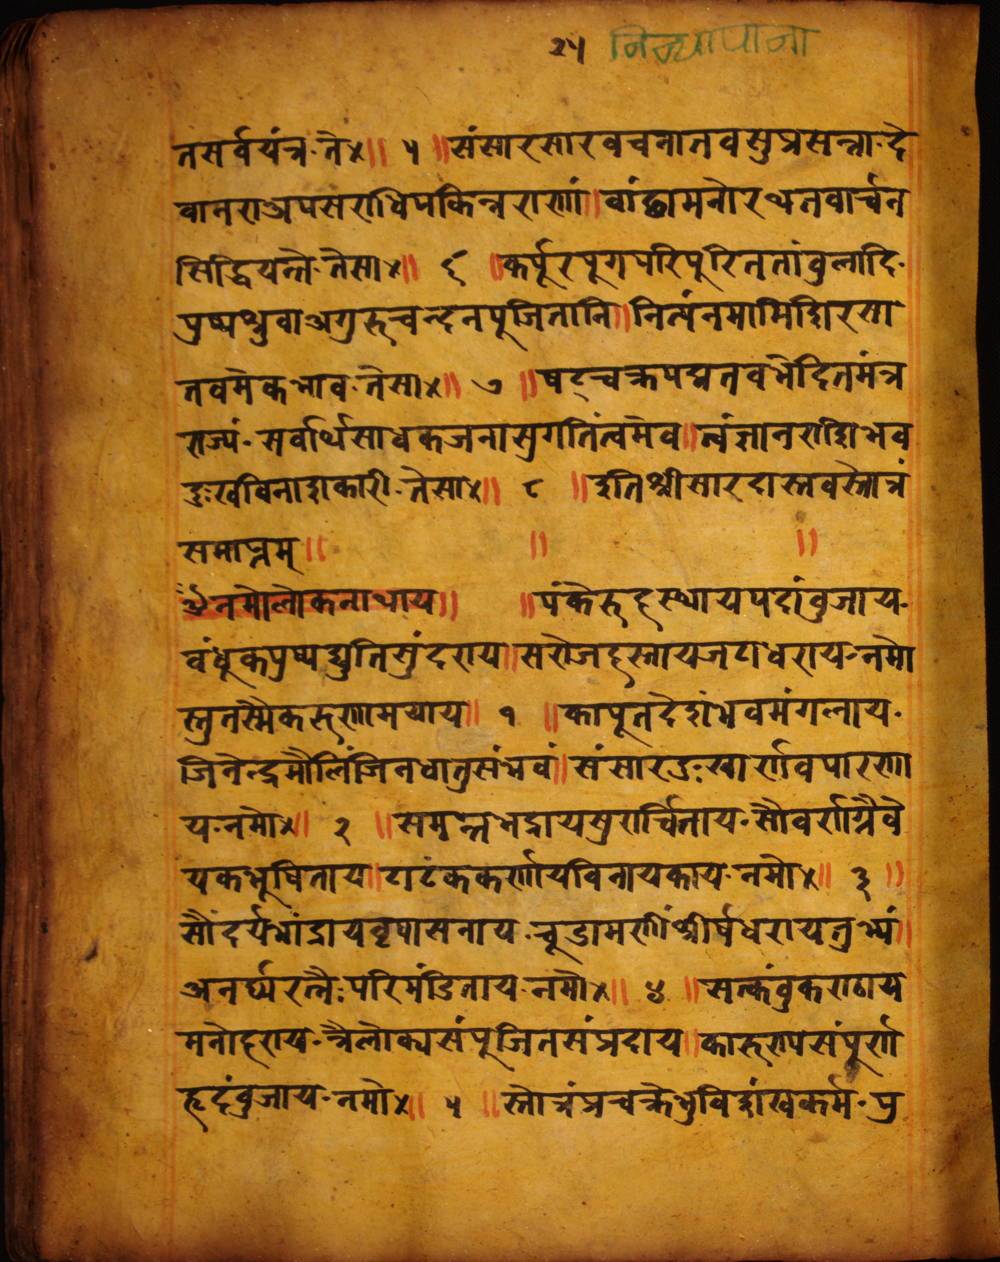 २५
तसर्वयंत्र·तै४॥ ५ ॥संसारसारवचनातवसुप्रसन्ना·दे
वानराअपसराधिपकिन्नराणां॥वांछामनोरथतवार्चन
सिद्धियन्तै·तैसा४॥ ६ ॥कर्पूरपूगपरिपुरिततांवुलादि·
प्रष्पथुवाअगुरुचन्दनपूजितानि॥नित्यंनमामिशिरसा
तवमेकभाव·तैसा४॥ ७ ॥षट्चक्रपद्मतवभेदितमंत्र
राज्यं·सर्वार्थसाधकजनासुगतिंत्वमेव॥त्वंज्ञानराशिभव
दुःखविनाशकारी·तैसा४॥ ८ ॥इतिश्रीसारदास्तवस्तोत्रं
समाप्तम्॥ ॥ ॥
ॐनमोलोकनाथाय॥ ॥पंकेरुहस्थायपदांवुजाय·
वंधूकप्रष्पद्युतिसुंदराय॥सरोजहस्तायजटाधराय·नमो
स्तुतस्मैकरुणामयाय॥ १ ॥कापूतदेशंभवमंगलाय·
जिनेन्द्रमौलिंजिनधातुसंभवं॥संसारदुःखार्णवपारणा
य·नमो४॥ २ ॥समन्तभद्रायसुरार्चिताय·सौवर्णग्रैवे
यकभूषिताय॥टाटंककर्णायविनायकाय·नमो४॥ ३ ॥
सौंदर्यशांद्रायवृषासनाय·चूडामणींशीर्षधरायतुभ्यं॥
अनर्घ्यरत्नैःपरिमंडिताय·नमो४॥ ४ ॥सत्कंवुकराठाय
मनोहराय·त्रैलोक्यसंपूजितसंप्रदाय॥कारुरापसंपूर्ण
हृदंवुजाय·नमो४॥ ५ ॥स्तोत्रंप्रचक्रेभुविशंखकर्म·प्र